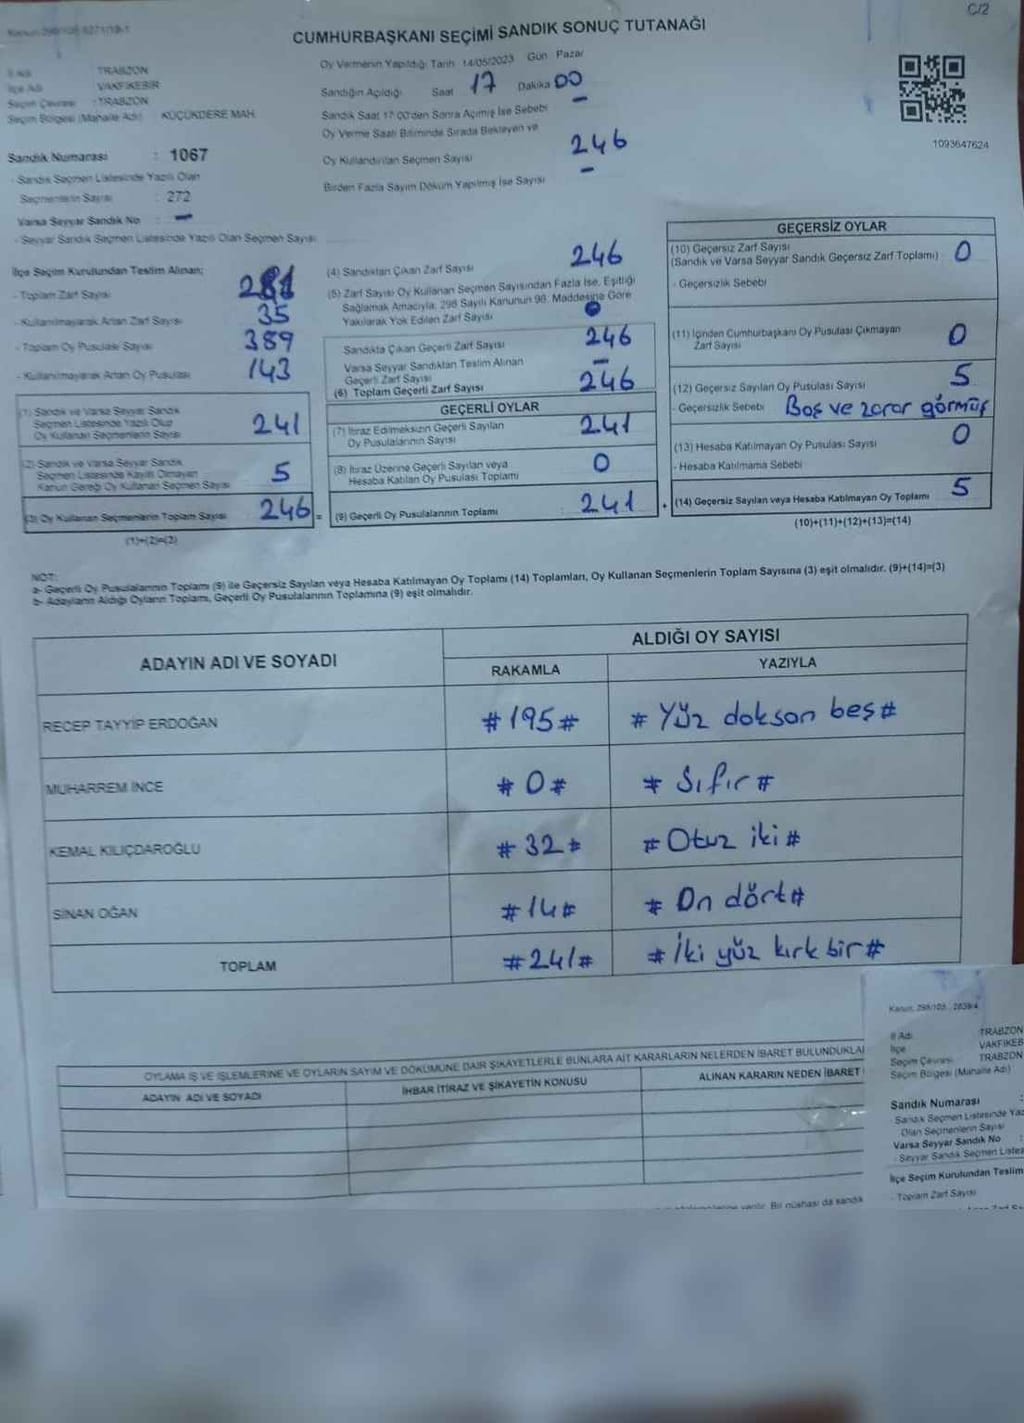 C/2
CUMHURBAŞKANI SEÇİMİ SANDIK SONUÇ TUTANAĞI
İl Adı TRABZON
İlçe Adı VAKFIKEBİR
Seçim Çevresi : TRABZON
Seçim Bölgesi (Mahalle Adı) KÜÇÜKDERE MAH.
Sandık Numarası : 1067
- Sandık Seçmen Listesinde Yazılı Olan
Seçmenlerin Sayısı : 272
Varsa Seyyar Sandık No : -
- Seyyar Sandık Seçmen Listesinde Yazılı Olan Seçmen Sayısı
Oy Vermenin Yapıldığı Tarih 14/05/2023 Gün Pazar
Sandığın Açıldığı Saat 17 Dakika 00
Sandık Saat 17:00'den Sonra Açılmış İse Sebebi -
Oy Verme Saati Bitiminde Sırada Bekleyen ve
Oy Kullandırılan Seçmen Sayısı 246
Birden Fazla Sayım Döküm Yapılmış İse Sayısı -
1093647624
İlçe Seçim Kurulundan Teslim Alınan;
- Toplam Zarf Sayısı 281
- Kullanılmayarak Artan Zarf Sayısı 35
- Toplam Oy Pusulası Sayısı 389
- Kullanılmayarak Artan Oy Pusulası 143
(1) Sandık ve Varsa Seyyar Sandık
Seçmen Listesinde Yazılı Olup
Oy Kullanan Seçmenlerin Sayısı 241
(2) Sandık ve Varsa Seyyar Sandık
Seçmen Listesinde Kayıtlı Olmayan
Kanun Gereği Oy Kullanan Seçmen Sayısı 5
(3) Oy Kullanan Seçmenlerin Toplam Sayısı 246 =
(1)+(2)=(3)
(4) Sandıktan Çıkan Zarf Sayısı 246
(5) Zarf Sayısı Oy Kullanan Seçmen Sayısından Fazla İse, Eşitliği
Sağlamak Amacıyla, 298 Sayılı Kanunun 98. Maddesine Göre
Yakılarak Yok Edilen Zarf Sayısı 0
Sandıkta Çıkan Geçerli Zarf Sayısı 246
Varsa Seyyar Sandıktan Teslim Alınan
Geçerli Zarf Sayısı -
(6) Toplam Geçerli Zarf Sayısı 246
GEÇERLİ OYLAR
(7) İtiraz Edilmeksizin Geçerli Sayılan
Oy Pusulalarının Sayısı 241
(8) İtiraz Üzerine Geçerli Sayılan veya
Hesaba Katılan Oy Pusulası Toplamı 0
(9) Geçerli Oy Pusulalarının Toplamı : 241 +
GEÇERSİZ OYLAR
(10) Geçersiz Zarf Sayısı
(Sandık ve Varsa Seyyar Sandık Geçersiz Zarf Toplamı) 0
- Geçersizlik Sebebi
(11) İçinden Cumhurbaşkanı Oy Pusulası Çıkmayan
Zarf Sayısı 0
(12) Geçersiz Sayılan Oy Pusulası Sayısı 5
- Geçersizlik Sebebi Boş ve zarar görmüş
(13) Hesaba Katılmayan Oy Pusulası Sayısı 0
- Hesaba Katılmama Sebebi
(14) Geçersiz Sayılan veya Hesaba Katılmayan Oy Toplamı 5
(10)+(11)+(12)+(13)=(14)
NOT:
a- Geçerli Oy Pusulalarının Toplamı (9) ile Geçersiz Sayılan veya Hesaba Katılmayan Oy Toplamı (14) Toplamları, Oy Kullanan Seçmenlerin Toplam Sayısına (3) eşit olmalıdır. (9)+(14)=(3)
b- Adayların Aldığı Oyların Toplamı, Geçerli Oy Pusulalarının Toplamına (9) eşit olmalıdır.
ADAYIN ADI VE SOYADI ALDIĞI OY SAYISI
RAKAMLA YAZIYLA
RECEP TAYYİP ERDOĞAN #195# # Yüz doksan beş #
MUHARREM İNCE #0# # Sıfır #
KEMAL KILIÇDAROĞLU #32# # Otuz iki #
SİNAN OĞAN #14# # On dört #
TOPLAM #241# # İki yüz kırk bir #
OYLAMA İŞ VE İŞLEMLERİNE VE OYLARIN SAYIM VE DÖKÜMÜNE DAİR ŞİKAYETLERLE BUNLARA AİT KARARLARIN NELERDEN İBARET BULUNDUKLA
ADAYIN ADI VE SOYADI İHBAR İTİRAZ VE ŞİKAYETİN KONUSU ALINAN KARARIN NEDEN İBARET
Bir nüshası da sandık
İl Adı TRABZON
İlçe VAKFIKEB
Seçim Çevresi TRABZON
Seçim Bölgesi (Mahalle Adı)
Sandık Numarası :
- Sandık Seçmen Listesinde Yaz
Olan Seçmenlerin Sayısı
Varsa Seyyar Sandık No :
- Seyyar Sandık Seçmen Listes
İlçe Seçim Kurulundan Teslim
- Toplam Zarf Sayısı